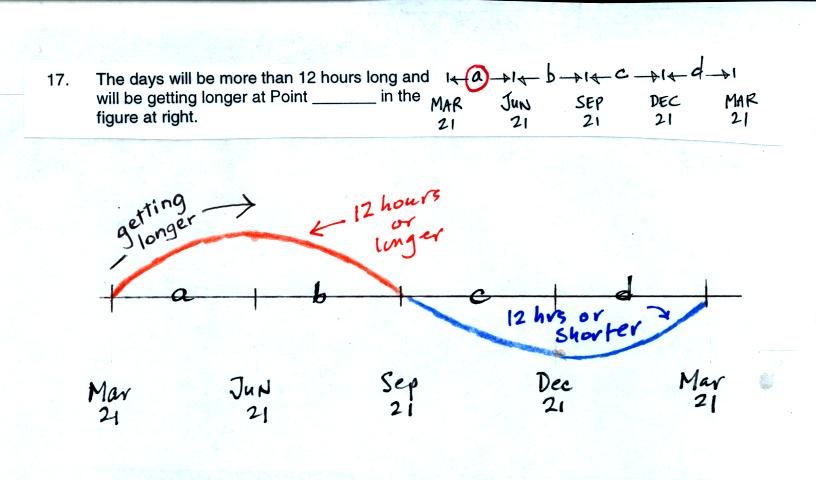 17. The days will be more than 12 hours long and
will be getting longer at Point ________ in the
figure at right.
a b c d
MAR JUN SEP DEC MAR
21 21 21 21 21
getting
longer
12 hours
or
longer
a b c d
12 hrs or
shorter
Mar Jun Sep Dec Mar
21 21 21 21 21